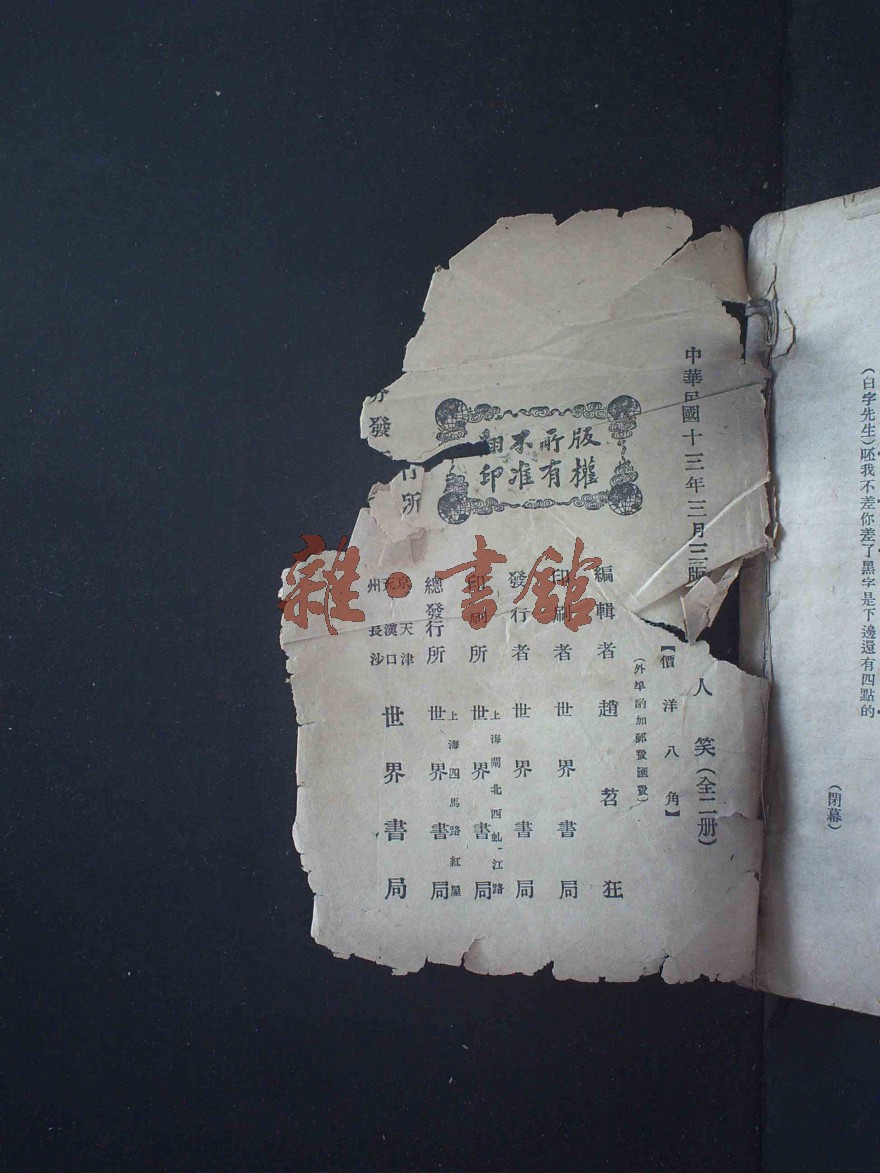 (白字先生)呸我不差你差了黑字是下邊還有四點的
(閉幕)
中華民國十三年三月三版
人笑(全二册)
【價洋八角】
(外埠酌加郵費匯費)
版權
所有
不准
翻印
編輯者 趙苕狂
印刷者 世界書局
發行者 世界書局
上海閘北西虬江路
印刷所 世界書局
上海四馬路紅屋
總發行所 世界書局
分發行所
天津
漢口
長沙
州
世界書局
雜·書館